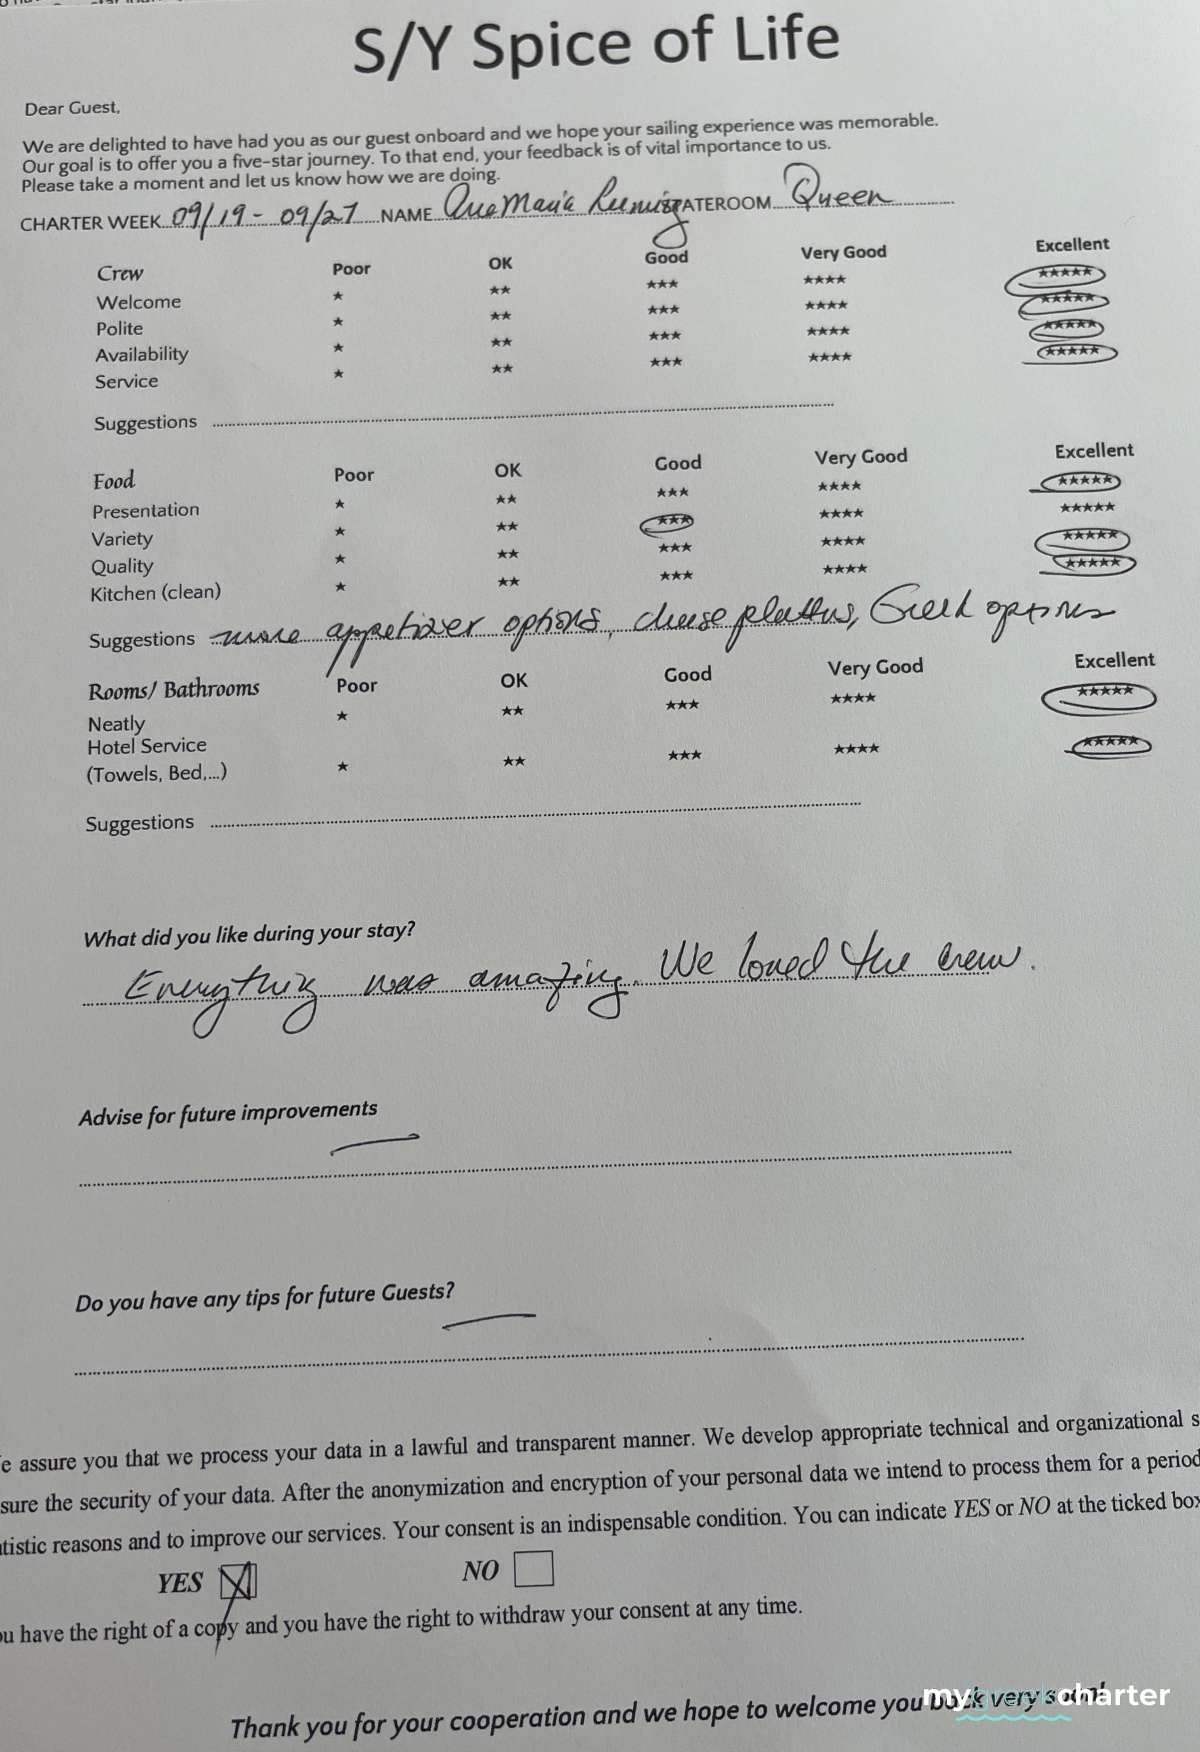 S/Y Spice of Life
Dear Guest,
We are delighted to have had you as our guest onboard and we hope your sailing experience was memorable.
Our goal is to offer you a five-star journey. To that end, your feedback is of vital importance to us.
Please take a moment and let us know how we are doing.
CHARTER WEEK 09/19 - 09/27 NAME Ana Maria STATEROOM Queen
Crew Poor OK Good Very Good Excellent
Welcome ★ ★★ ★★★ ★★★★ ★★★★★
Polite ★ ★★ ★★★ ★★★★ ★★★★★
Availability ★ ★★ ★★★ ★★★★ ★★★★★
Service ★ ★★ ★★★ ★★★★ ★★★★★
Suggestions
Food Poor OK Good Very Good Excellent
Presentation ★ ★★ ★★★ ★★★★ ★★★★★
Variety ★ ★★ ★★★ ★★★★ ★★★★★
Quality ★ ★★ ★★★ ★★★★ ★★★★★
Kitchen (clean) ★ ★★ ★★★ ★★★★ ★★★★★
Suggestions more appetizer options, cheese platters, Greek options
Rooms/ Bathrooms Poor OK Good Very Good Excellent
Neatly ★ ★★ ★★★ ★★★★ ★★★★★
Hotel Service
(Towels, Bed,...) ★ ★★ ★★★ ★★★★ ★★★★★
Suggestions
What did you like during your stay?
Everything was amazing. We loved the crew.
Advise for future improvements
Do you have any tips for future Guests?
e assure you that we process your data in a lawful and transparent manner. We develop appropriate technical and organizational s
sure the security of your data. After the anonymization and encryption of your personal data we intend to process them for a period
tistic reasons and to improve our services. Your consent is an indispensable condition. You can indicate YES or NO at the ticked box
YES NO
ou have the right of a copy and you have the right to withdraw your consent at any time.
Thank you for your cooperation and we hope to welcome you back very soon!
mygreekcharter